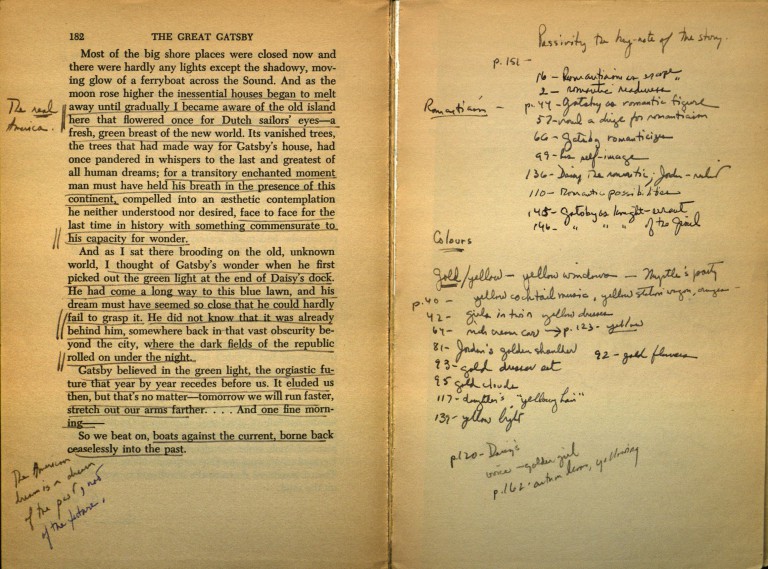 182 THE GREAT GATSBY
Most of the big shore places were closed now and
there were hardly any lights except the shadowy, mov-
ing glow of a ferryboat across the Sound. And as the
moon rose higher the inessential houses began to melt
away until gradually I became aware of the old island
here that flowered once for Dutch sailors' eyes—a
fresh, green breast of the new world. Its vanished trees,
the trees that had made way for Gatsby's house, had
once pandered in whispers to the last and greatest of
all human dreams; for a transitory enchanted moment
man must have held his breath in the presence of this
continent, compelled into an æsthetic contemplation
he neither understood nor desired, face to face for the
last time in history with something commensurate to
his capacity for wonder.
And as I sat there brooding on the old, unknown
world, I thought of Gatsby's wonder when he first
picked out the green light at the end of Daisy's dock.
He had come a long way to this blue lawn, and his
dream must have seemed so close that he could hardly
fail to grasp it. He did not know that it was already
behind him, somewhere back in that vast obscurity be-
yond the city, where the dark fields of the republic
rolled on under the night.
Gatsby believed in the green light, the orgiastic fu-
ture that year by year recedes before us. It eluded us
then, but that's no matter—tomorrow we will run faster,
stretch out our arms farther. . . . And one fine morn-
ing—
So we beat on, boats against the current, borne back
ceaselessly into the past.
The real
America.
The American
dream is a dream
of the past, not
of the future.
Passivity the key-note of the story.
p. 151 –
16 – Romanticism as escape
2 – romantic readiness "
Romanticism – p. 44 – Gatsby as romantic figure
57 – a dirge for romanticism
66 – Gatsby romanticizes
99 – his self-image
136 – Daisy the romantic; Jordan –
110 – Romantic possibilities
145 – Gatsby as knight-errant
146 – " " " of the Grail
Colours
Gold/yellow – yellow windows – Myrtle's party
p. 40 – yellow cocktail music, yellow station wagon,
42 – girls in twin yellow dresses
64 – rich cream car → p. 123 – yellow
81 – Jordan's golden shoulder
92 – gold flowers
93 – gold dresser set
95 gold clouds
117 – daughter's "yellowy hair"
139 – yellow light
p. 120 – Daisy's
voice – golden girl
p. 162 – leaves, yellowing